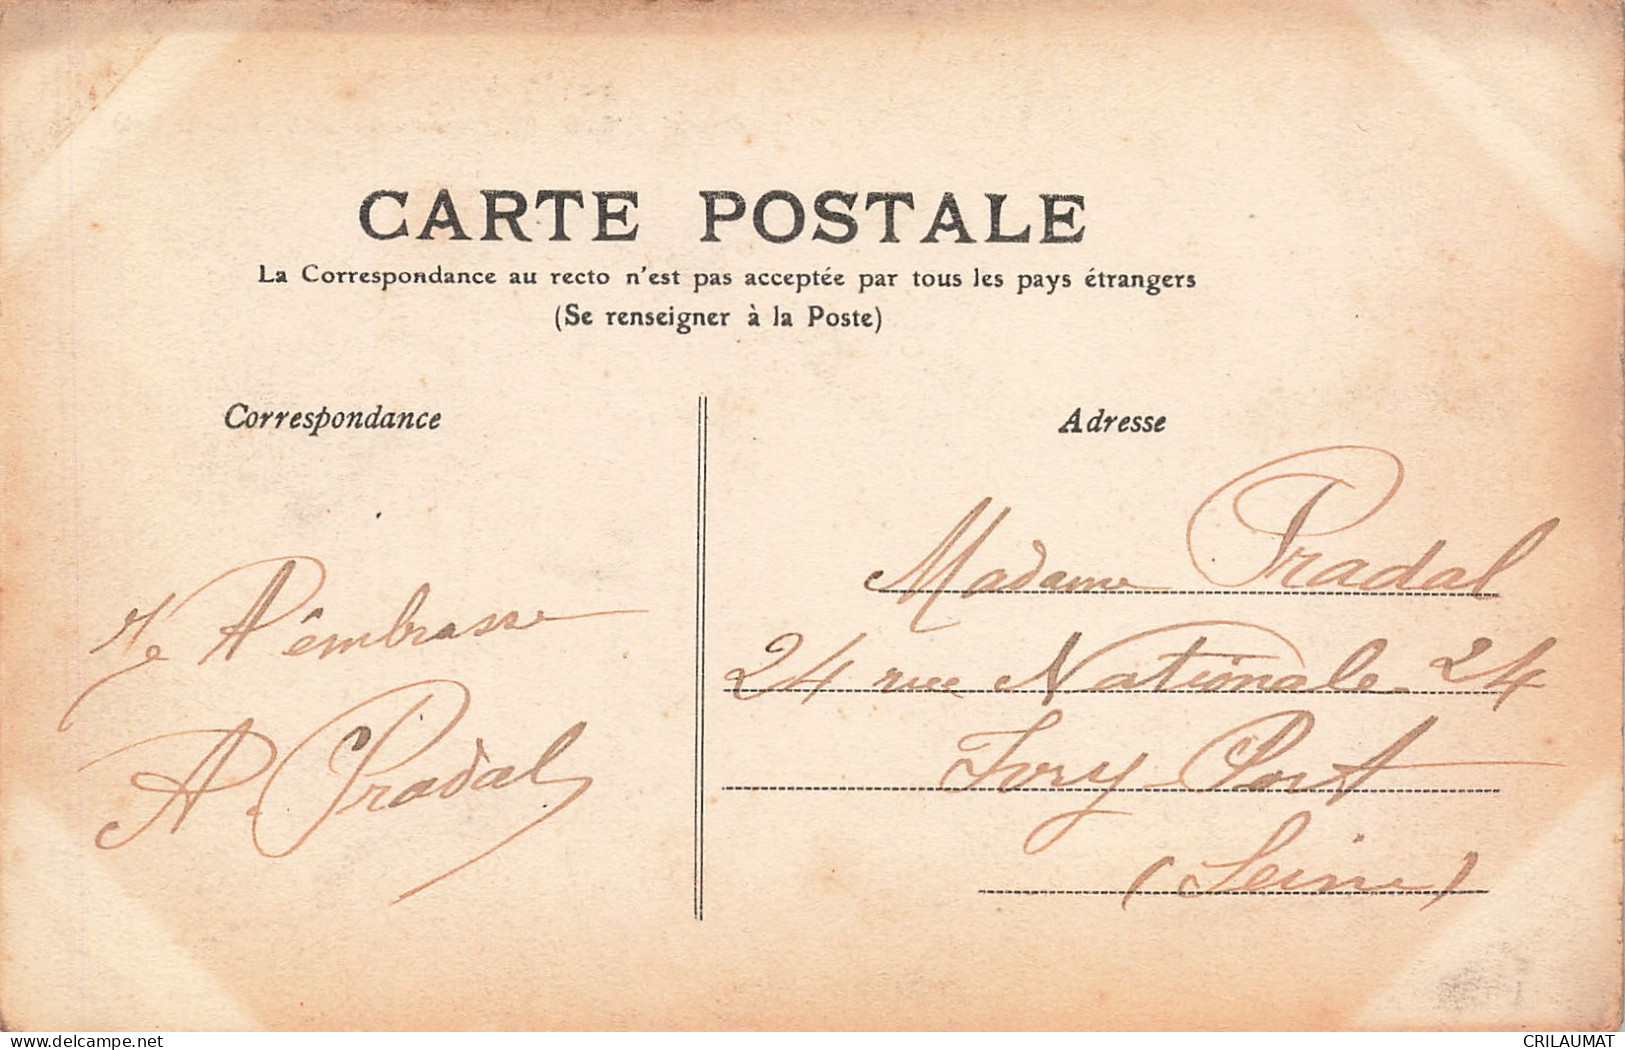 CARTE POSTALE
La Correspondance au recto n'est pas acceptée par tous les pays étrangers
(Se renseigner à la Poste)
Correspondance
Je t'embrasse
A. Pradal
Adresse
Madame Pradal
24 rue Nationale 24
Ivry-Port
(Seine)
www.delcampe.net
CRILAUMAT